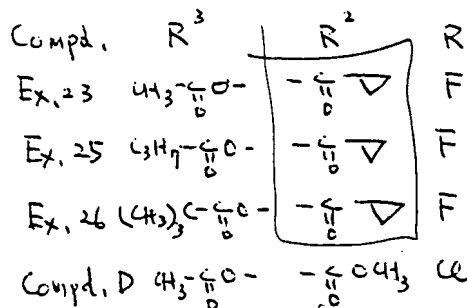 Compd. R³ R² R
Ex. 23 CH₃-C(=O)O- -C(=O)▽ F
Ex. 25 C₃H₇-C(=O)O- -C(=O)▽ F
Ex. 26 (CH₃)₃C-C(=O)O- -C(=O)▽ F
Compd. D CH₃-C(=O)O- -C(=O)OCH₃ Cl